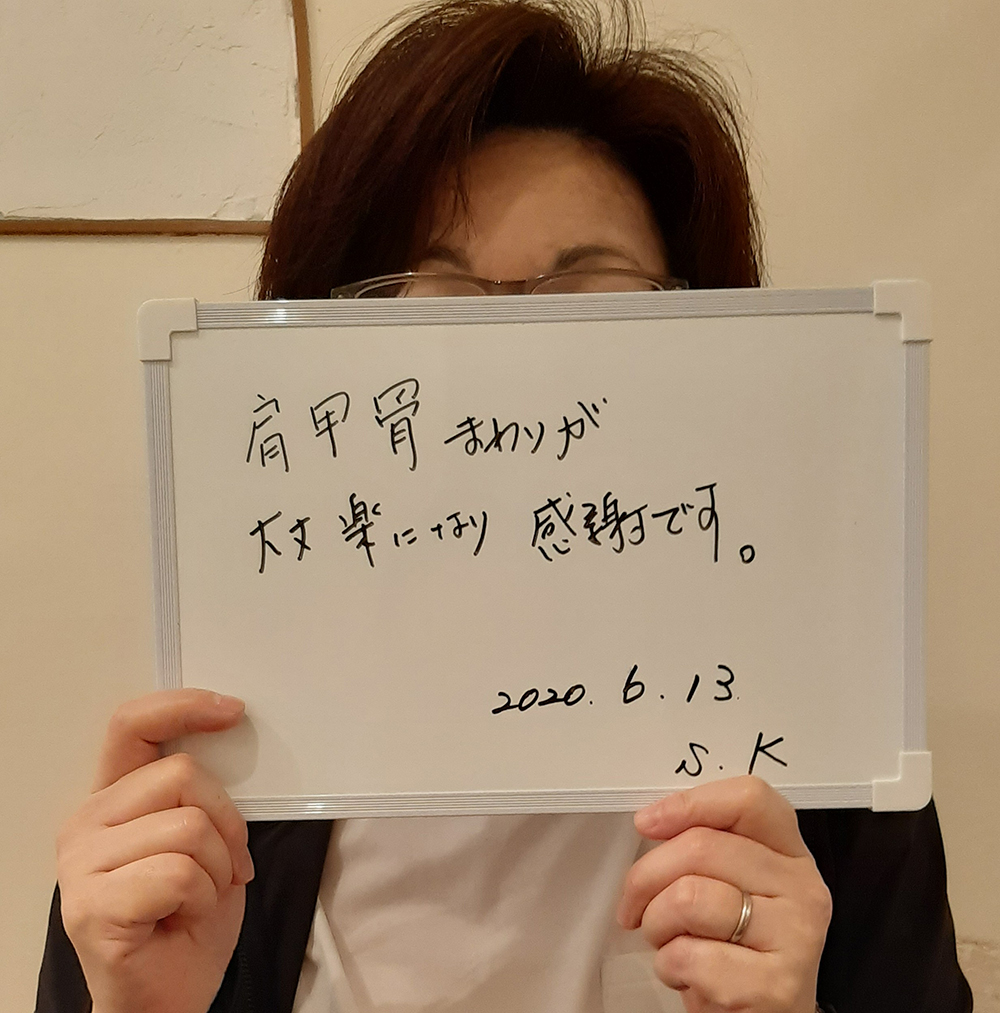 肩甲骨まわりが
大丈楽になり 感謝です。
2020.6.13
S.K